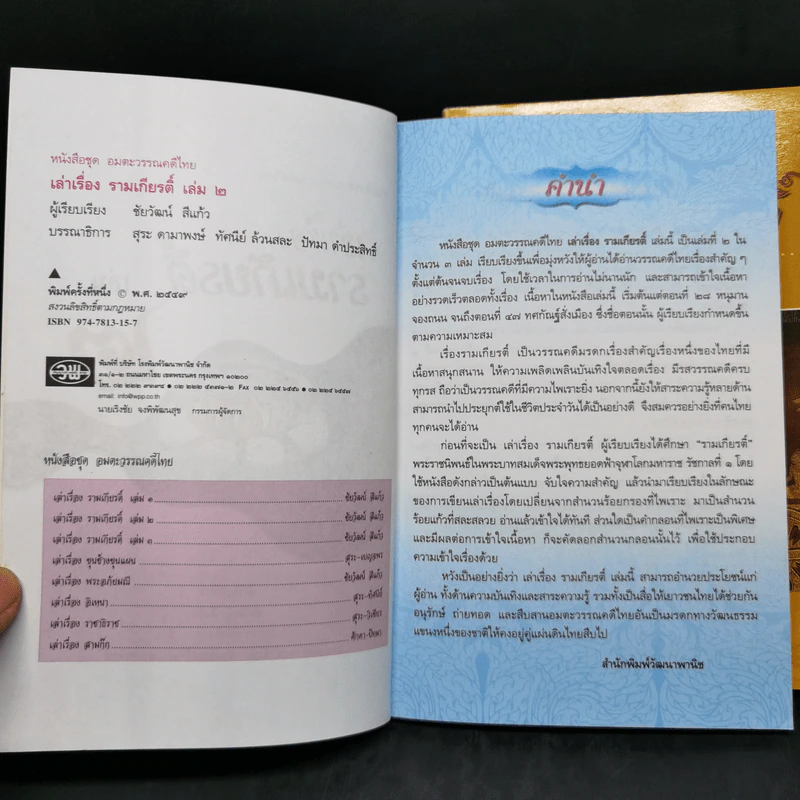 หนังสือชุด อมตะวรรณคดีไทย
เล่าเรื่อง รามเกียรติ์ เล่ม ๒
ผู้เรียบเรียง ชัยวัฒน์ สีแก้ว
บรรณาธิการ สุระ ดามาพงษ์ ทัศนีย์ ล้วนสละ ปัทมา ดำประสิทธิ์
พิมพ์ครั้งที่หนึ่ง © พ.ศ. ๒๕๔๙
สงวนลิขสิทธิ์ตามกฎหมาย
ISBN 974-7813-15-7
วพ
พิมพ์ที่ บริษัท โรงพิมพ์วัฒนาพานิช จำกัด
๓๑/๑-๒ ถนนมหาไชย เขตพระนคร กรุงเทพฯ ๑๐๒๐๐
email: info@wpp.co.th
นายเริงชัย จงพิพัฒนสุข กรรมการผู้จัดการ
หนังสือชุด อมตะวรรณคดีไทย
เล่าเรื่อง รามเกียรติ์ เล่ม ๑ ชัยวัฒน์ สีแก้ว
เล่าเรื่อง รามเกียรติ์ เล่ม ๒ ชัยวัฒน์ สีแก้ว
เล่าเรื่อง รามเกียรติ์ เล่ม ๓ ชัยวัฒน์ สีแก้ว
เล่าเรื่อง ขุนช้างขุนแผน สุระ-เบญจพร
เล่าเรื่อง พระอภัยมณี ชัยวัฒน์ สีแก้ว
เล่าเรื่อง อิเหนา สุระ-
เล่าเรื่อง ราชาธิราช สุระ-วิเชียร
เล่าเรื่อง สามก๊ก
คำนำ
หนังสือชุด อมตะวรรณคดีไทย เล่าเรื่อง รามเกียรติ์ เล่มนี้ เป็นเล่มที่ ๒ ใน
จำนวน ๓ เล่ม เรียบเรียงขึ้นเพื่อมุ่งหวังให้ผู้อ่านได้อ่านวรรณคดีไทยเรื่องสำคัญ ๆ
ตั้งแต่ต้นจนจบเรื่อง โดยใช้เวลาในการอ่านไม่นานนัก และสามารถเข้าใจเนื้อหา
อย่างรวดเร็วตลอดทั้งเรื่อง เนื้อหาในหนังสือเล่มนี้ เริ่มต้นแต่ตอนที่ ๒๘ หนุมาน
จองถนน จนถึงตอนที่ ๔๗ ทศกัณฐ์สั่งเมือง ซึ่งชื่อตอนนั้น ผู้เรียบเรียงกำหนดขึ้น
ตามความเหมาะสม
เรื่องรามเกียรติ์ เป็นวรรณคดีมรดกเรื่องสำคัญเรื่องหนึ่งของไทยที่มี
เนื้อหาสนุกสนาน ให้ความเพลิดเพลินบันเทิงใจตลอดเรื่อง มีรสวรรณคดีครบ
ทุกรส ถือว่าเป็นวรรณคดีที่มีความไพเราะยิ่ง นอกจากนี้ยังให้สาระความรู้หลายด้าน
สามารถนำไปประยุกต์ใช้ในชีวิตประจำวันได้เป็นอย่างดี จึงสมควรอย่างยิ่งที่คนไทย
ทุกคนจะได้อ่าน
ก่อนที่จะเป็น เล่าเรื่อง รามเกียรติ์ ผู้เรียบเรียงได้ศึกษา "รามเกียรติ์"
พระราชนิพนธ์ในพระบาทสมเด็จพระพุทธยอดฟ้าจุฬาโลกมหาราช รัชกาลที่ ๑ โดย
ใช้หนังสือดังกล่าวเป็นต้นแบบ จับใจความสำคัญ แล้วนำมาเรียบเรียงในลักษณะ
ของการเขียนเล่าเรื่องโดยเปลี่ยนจากสำนวนร้อยกรองที่ไพเราะ มาเป็นสำนวน
ร้อยแก้วที่สละสลวย อ่านแล้วเข้าใจได้ทันที ส่วนใดเป็นคำกลอนที่ไพเราะเป็นพิเศษ
และมีผลต่อการเข้าใจเนื้อหา ก็จะคัดลอกสำนวนกลอนนั้นไว้ เพื่อใช้ประกอบ
ความเข้าใจเรื่องด้วย
หวังเป็นอย่างยิ่งว่า เล่าเรื่อง รามเกียรติ์ เล่มนี้ สามารถอำนวยประโยชน์แก่
ผู้อ่าน ทั้งด้านความบันเทิงและสาระความรู้ รวมทั้งเป็นสื่อให้เยาวชนไทยได้ช่วยกัน
อนุรักษ์ ถ่ายทอด และสืบสานอมตะวรรณคดีไทยอันเป็นมรดกทางวัฒนธรรม
แขนงหนึ่งของชาติให้คงอยู่คู่แผ่นดินไทยสืบไป
สำนักพิมพ์วัฒนาพานิช